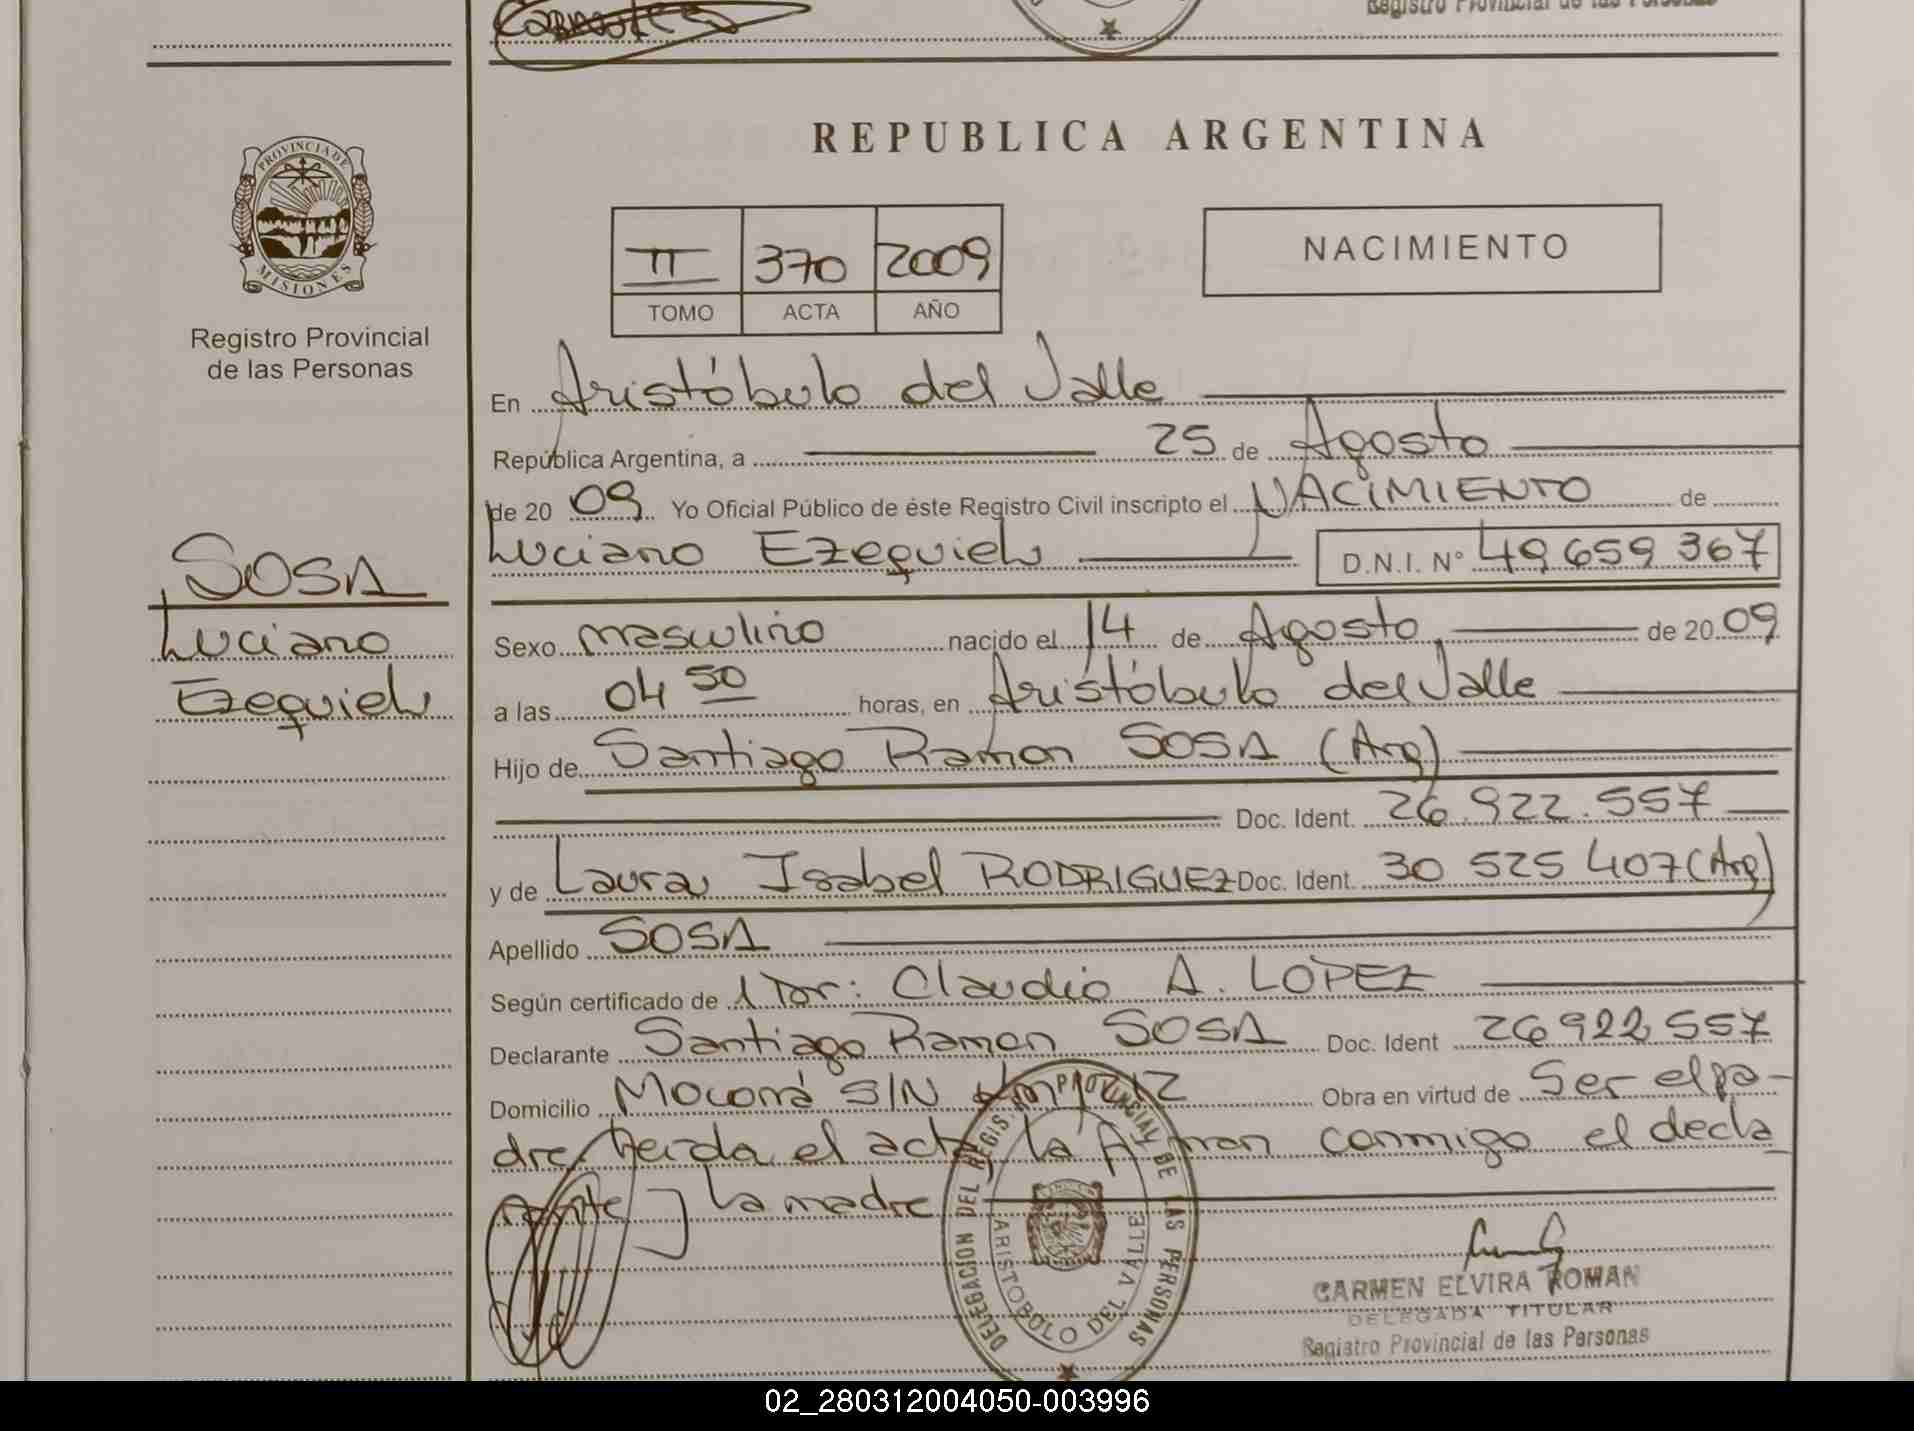 Registro Provincial de las Personas
REPUBLICA ARGENTINA
PROVINCIA DE
MISIONES
Registro Provincial
de las Personas
II 370 2009
TOMO ACTA AÑO
NACIMIENTO
En Aristóbulo del Valle
República Argentina, a 25 de Agosto
de 20 09 Yo Oficial Público de éste Registro Civil inscripto el NACIMIENTO de
Luciano Ezequiel D.N.I. N° 49 659 367
SOSA
Luciano
Ezequiel
Sexo masculino nacido el 14 de Agosto de 20 09
a las 04 50 horas, en Aristóbulo del Valle
Hijo de Santiago Ramon SOSA (Arg)
Doc. Ident. 26.922.557
y de Laura Isabel RODRIGUEZ Doc. Ident. 30 525 407 (Arg)
Apellido SOSA
Según certificado de Dr: Claudio A. LOPEZ
Declarante Santiago Ramon SOSA Doc. Ident 26922557
Domicilio Moconá S/N Obra en virtud de Ser el pa-
dre, Leida el acta, la firman conmigo el decla
rante y la madre
DELEGACION DEL REGIS. PROVINCIAL DE LAS PERSONAS
ARISTOBOLO DEL VALLE
CARMEN ELVIRA ROMAN
DELEGADA TITULAR
Registro Provincial de las Personas
02_280312004050-003996